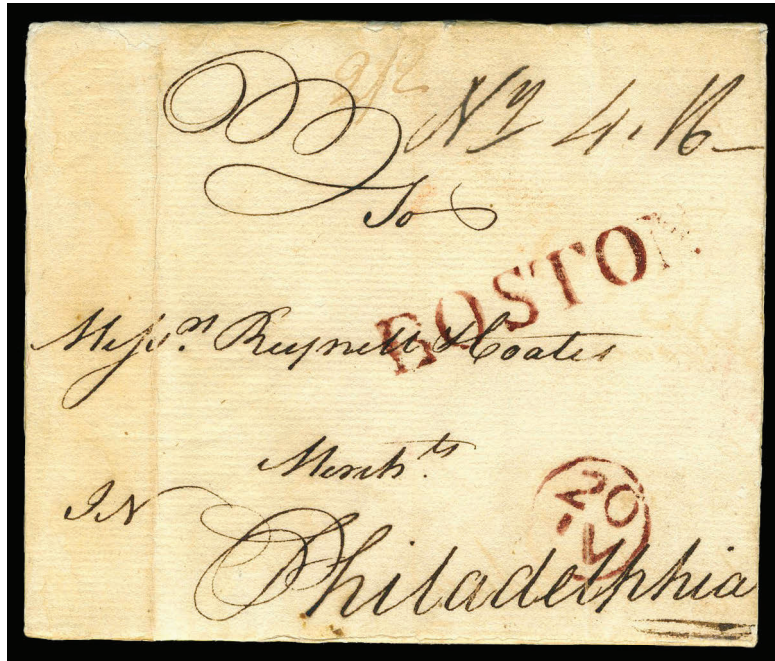 2/2
Ny 4.16
To
BOSTON
Messrs Reynell & Coates
Merchts
IN
20
Philadelphia